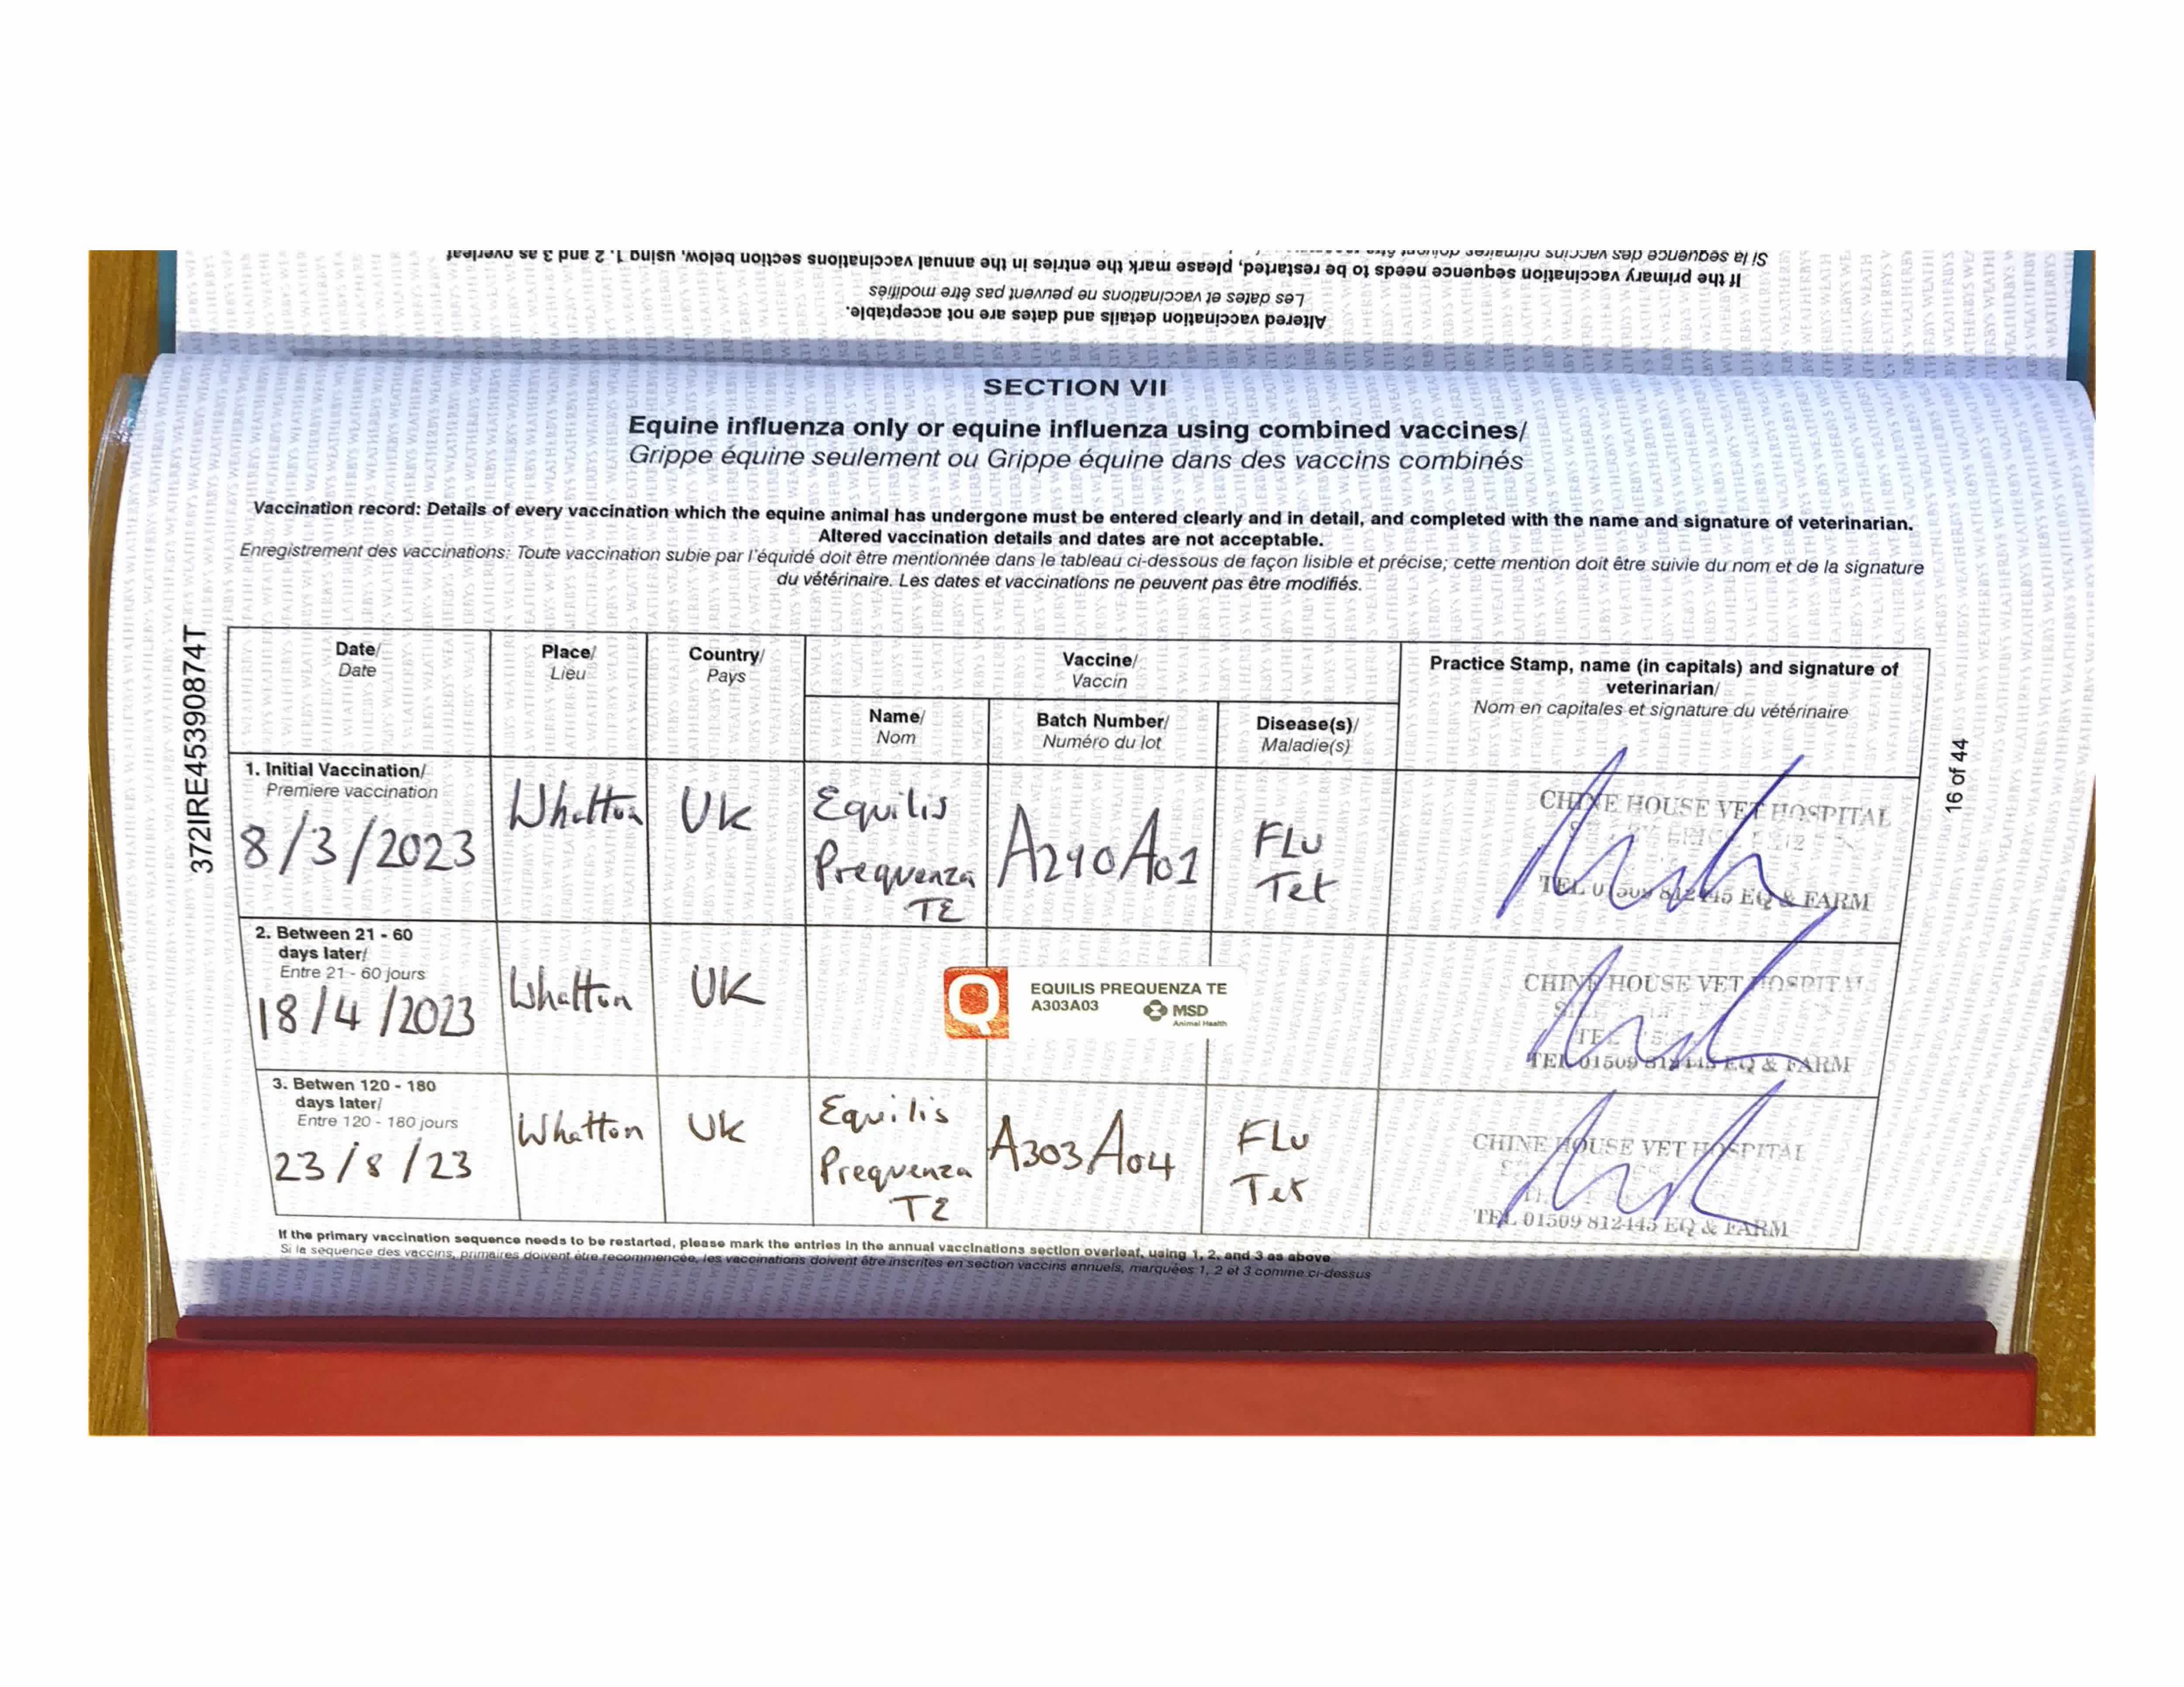 Si la séquence des vaccins primaires doivent être
If the primary vaccination sequence needs to be restarted, please mark the entries in the annual vaccinations section below, using 1, 2 and 3 as overleaf
Les dates et vaccinations ne peuvent pas être modifiés
Altered vaccination details and dates are not acceptable.
SECTION VII
Equine influenza only or equine influenza using combined vaccines/
Grippe équine seulement ou Grippe équine dans des vaccins combinés
Vaccination record: Details of every vaccination which the equine animal has undergone must be entered clearly and in detail, and completed with the name and signature of veterinarian.
Altered vaccination details and dates are not acceptable.
Enregistrement des vaccinations: Toute vaccination subie par l'équidé doit être mentionnée dans le tableau ci-dessous de façon lisible et précise; cette mention doit être suivie du nom et de la signature
du vétérinaire. Les dates et vaccinations ne peuvent pas être modifiés.
372IRE45390874T
16 of 44
Date/
Date
Place/
Lieu
Country/
Pays
Vaccine/
Vaccin
Practice Stamp, name (in capitals) and signature of
veterinarian/
Nom en capitales et signature du vétérinaire
Name/
Nom
Batch Number/
Numéro du lot
Disease(s)/
Maladie(s)
1. Initial Vaccination/
Premiere vaccination
8/3/2023
Whatton
UK
Equilis
Prequenza
TE
A290A01
FLU
Tet
CHINE HOUSE VET HOSPITAL
TEL 01509 812445 EQ & FARM
2. Between 21 - 60
days later/
Entre 21 - 60 jours
18/4/2023
Whatton
UK
Q
EQUILIS PREQUENZA TE
A303A03
MSD
Animal Health
CHINE HOUSE VET HOSPITAL
TEL 01509 812445 EQ & FARM
3. Betwen 120 - 180
days later/
Entre 120 - 180 jours
23/8/23
Whatton
UK
Equilis
Prequenza
TE
A303A04
FLU
Tet
CHINE HOUSE VET HOSPITAL
TEL 01509 812445 EQ & FARM
If the primary vaccination sequence needs to be restarted, please mark the entries in the annual vaccinations section overleaf, using 1, 2, and 3 as above
Si la séquence des vaccins, primaires doivent être recommencée, les vaccinations doivent être inscrites en section vaccins annuels, marquées 1, 2 et 3 comme ci-dessus